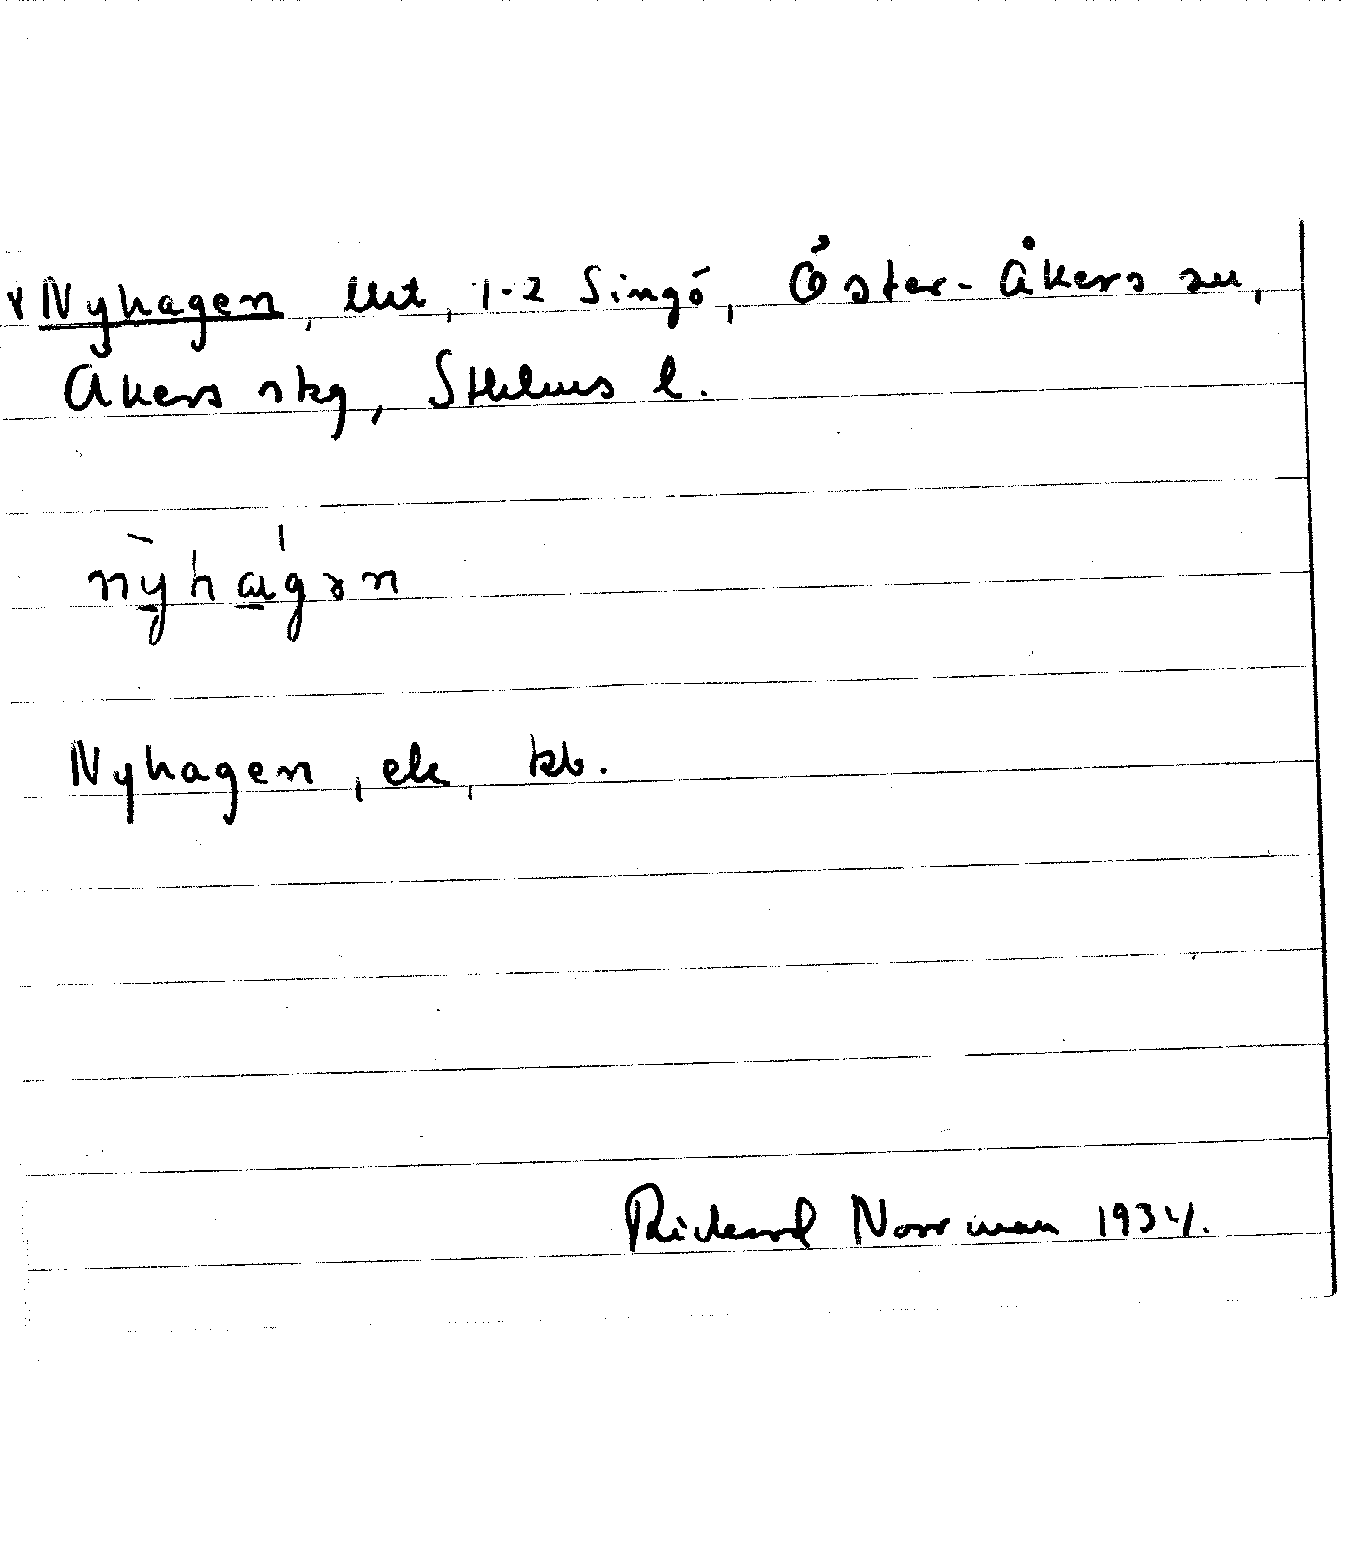 Nyhagen, lht, 1-2 Singö, Öster-Åkers sn,
Åkers skg, Sthlms l.
nỳhágən
Nyhagen, ek, kb.
Rickard Norrman 1934.